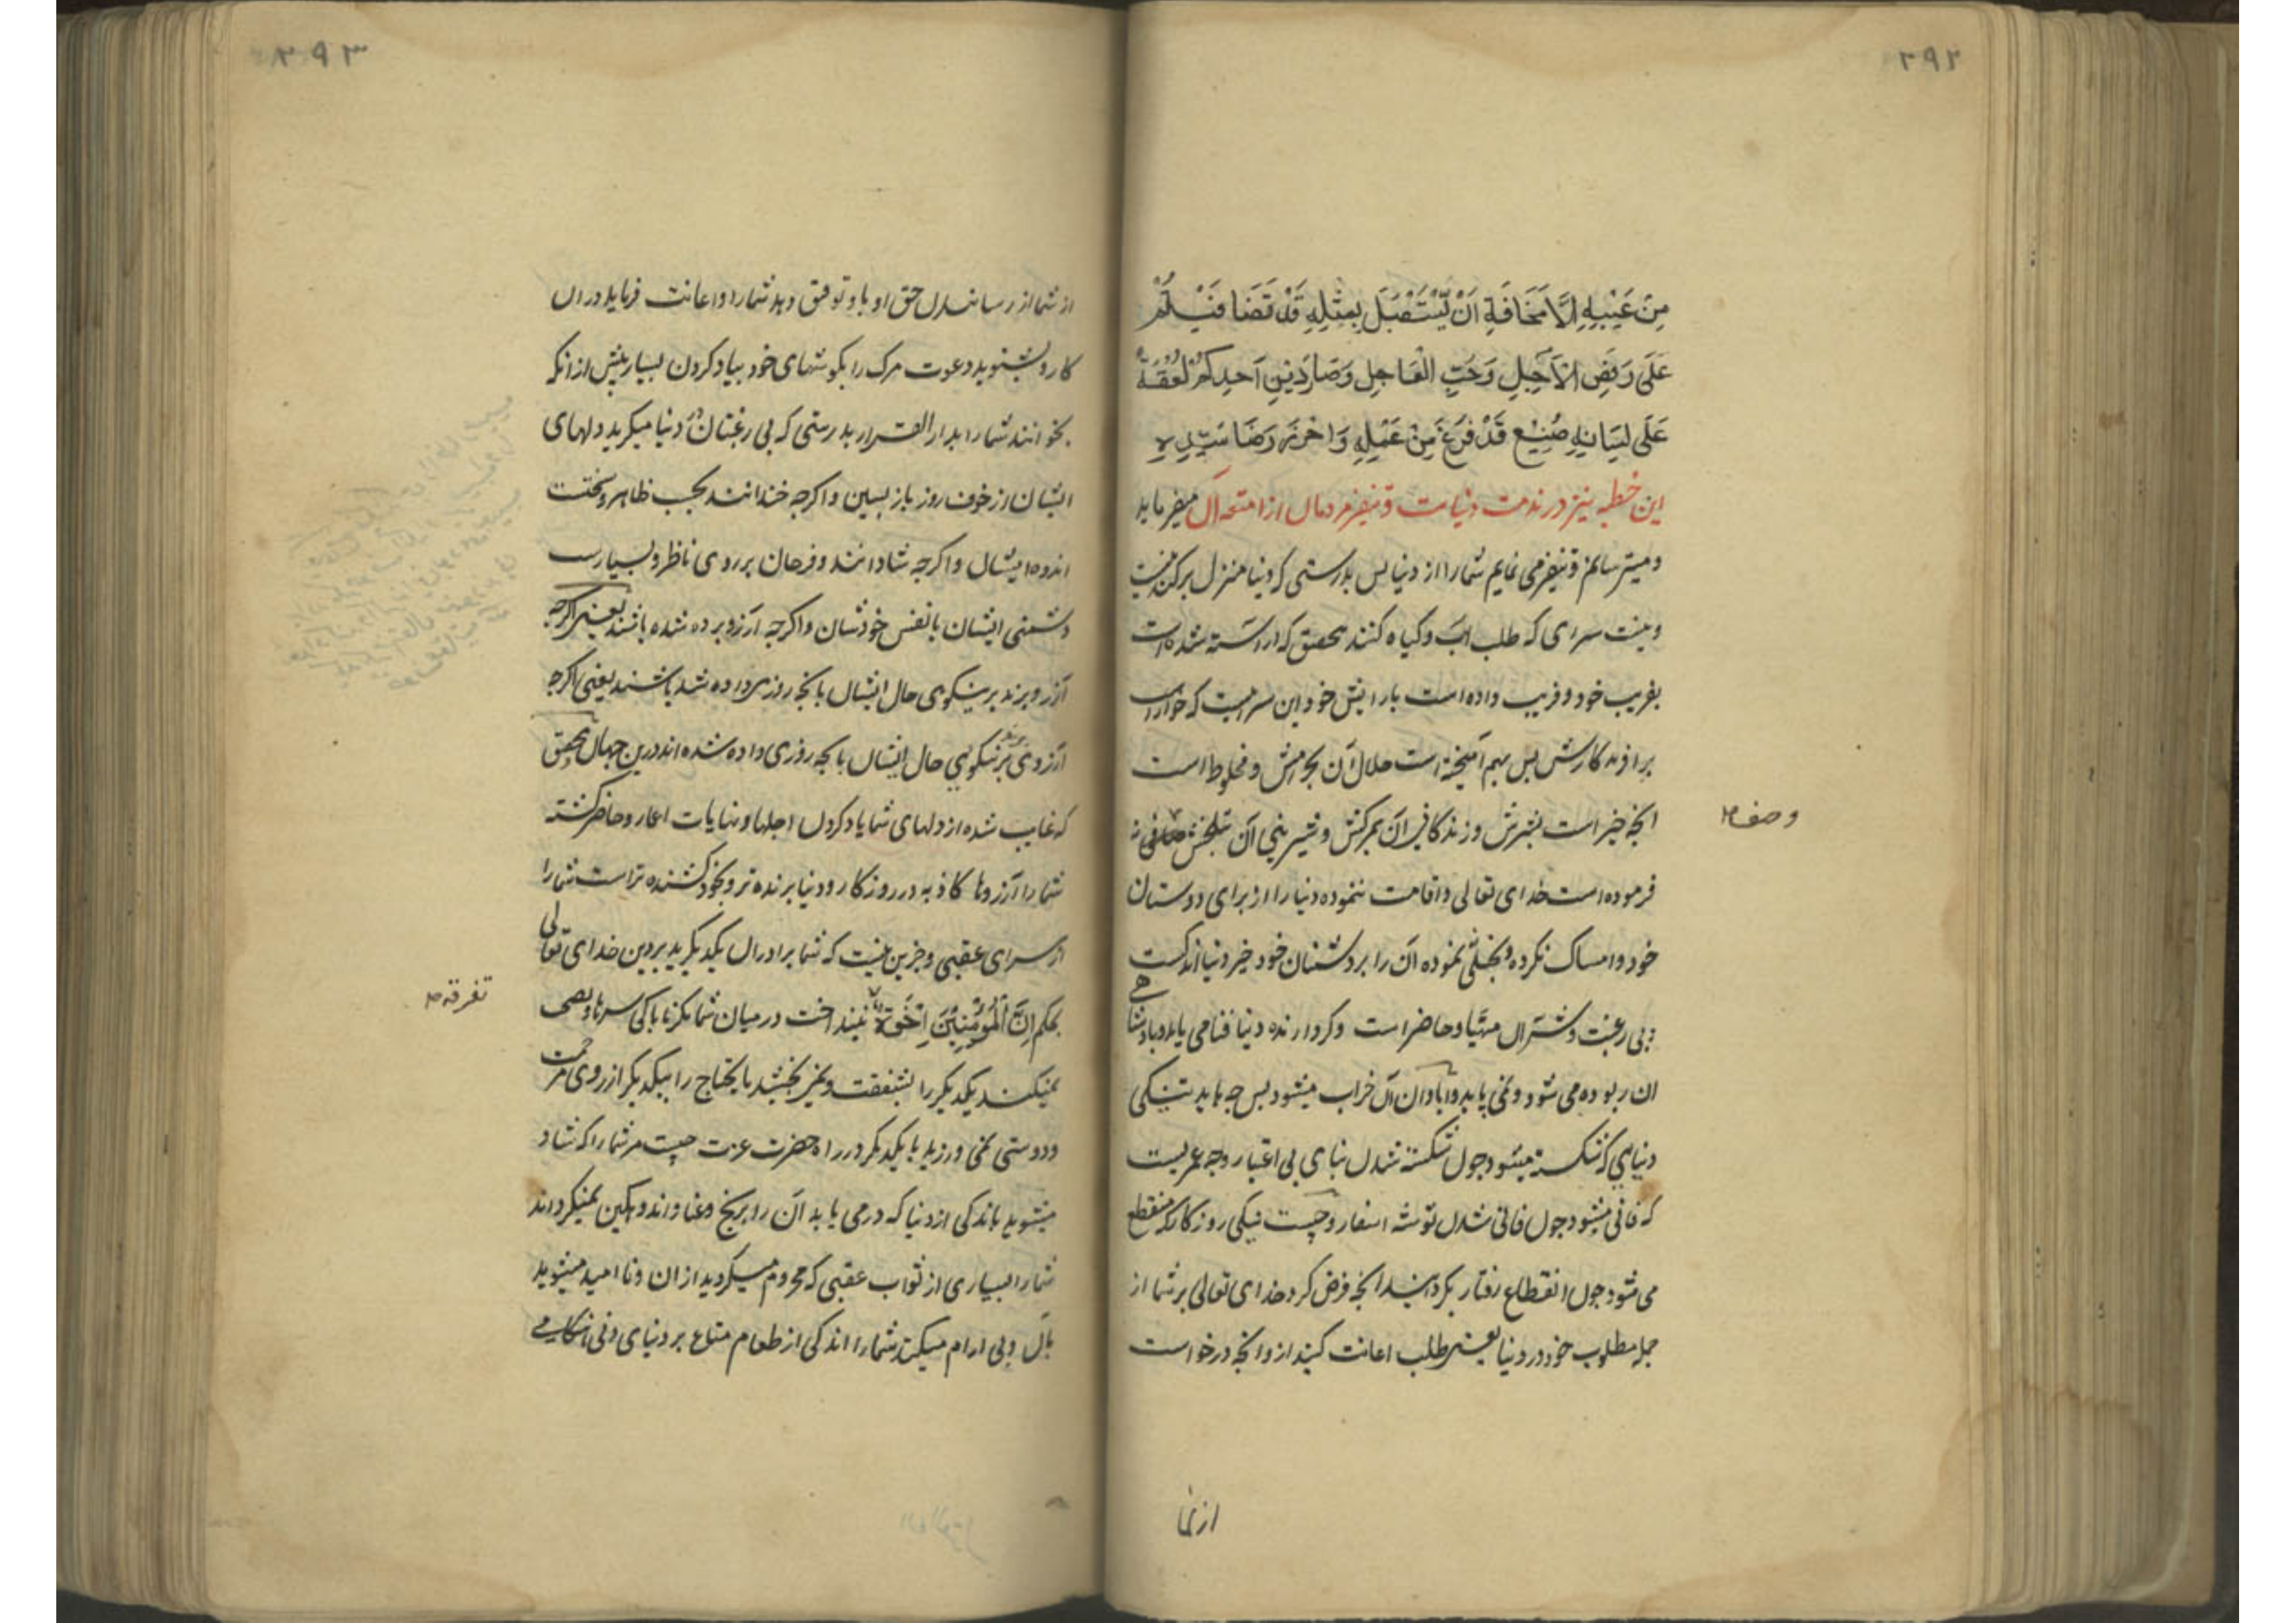 ۲۹۲
مِنْ عَيْبِهِ اِلَّا مَخَافَةَ اَنْ يَسْتَقْبِلَ بِمِثْلِهِ قَدْ تَصَافَيْتُمْ
عَلَى رَفْضِ الْآجِلِ وَحُبِّ الْعَاجِلِ وَصَارَ دِيْنِ اَحَدِكُمْ لُعْقَةً
عَلَى لِسَانِهِ صَنِيْعَ قَدْ فَرَغَ مِنْ عَمَلِهِ وَاَحْرَزَ رِضَا سَيِّدِهِ
این خطبه نیز در مذمت دنیاست و تنفیر مردمان از امتعه آن میفرماید
و میترسانم و تنفیر می نمایم شما را از دنیا پس بدرستی که دنیا منزل برکندنیست
و نیست سرای که طلب آب و گیاه کنند بتحقیق که آراسته شده است
بفریب خود و فریب داده است بآرایش خود این سرائیست که خوار است
برآفریدگارش پس بهم آمیخته است حلال آن بحرامش و مخلوط است
انچه خیر است بشرش و زندگانی آن بمرگش و شیرینی آن بتلخیش صافی نه
وصف
فرموده است خدای تعالی و اقامت ننموده دنیا را از برای دوستان
خود و امساک نکرده و بخیلی ننموده آن را بر دشمنان خود خیر دنیا اندکست
و بی رغبت و شر آن مهیا و حاضر است و گرد آرنده دنیا فنا می یابد و پادشاهی
آن ربوده می شود و نمی پاید و آبادان آن خراب میشود پس چه باید نیکی
دنیایی که شکسته میشود چون شکسته شدن بنای بی اعتبار و چه عمریست
که فانی میشود چون فانی شدن توشه اسفار و چیست نیکی روزگاری که منقطع
می شود چون انقطاع رفتار بگردانید انچه فرض کرد خدای تعالی بر شما از
جمله مطلوب خود در دنیا یعنی طلب اعانت کنید ازو انچه درخواست
از شما
۲۹۳
از شما از رسانیدن حق او باو توفیق دهد شما را و اعانت فرماید در آن
کار و بشنوید دعوت مرگ را بگوشهای خود بیاد کردن بسیار پیش از انکه
بخوانند شما را بدار القرار بدرستی که بی رغبتان در دنیا میگرید دلهای
ایشان از خوف روز باز پسین و اگرچه خندانند بحسب ظاهر و سختست
اندوه ایشان و اگرچه شادانند و فرحان بر روی ناظر و بسیارست
دشمنی ایشان با نفس خودشان و اگرچه آرزو برده شده باشند یعنی اگرچه
آرزو برند بر نیکوی حال ایشان بانچه روزی داده شد باشند یعنی اگرچه
آرزوی برند بر نیکویی حال ایشان بانچه روزی داده شده اند درین جهان بتحقیق
که غایب شده از دلهای شما یاد کردن اجلها و نهایات اعمار و حاضر گشته
شما را آرزوها کاذبه در روزگار و دنیا برنده تر و بخود کشنده تر است شما را
از سرای عقبی و جزین نیست که شما برادران یکدیگرید بر دین خدای تعالی
بحکم اِنَّ الْمُؤْمِنِيْنَ اِخْوَةٌ نینداخت در میان شما مگر ناپاکی سرها و بدی
تفرقه
نمیکنید یکدیگر را بشفقت و نمی بخشید مایحتاج را بیکدیگر از روی مرحمت
و دوستی نمی ورزید با یکدیگر در راه حضرت عزت چیست مر شما را که شاد
میشوید باندکی از دنیا که در می یابید آن را برنج و عنا و اندوهگین نمیگرداند
شما را بسیاری از ثواب عقبی که محروم میگردید از ان و نا امید میشوید
بآن و بی آرام میکند شما را اندکی از طعام متاع بر دنیای دنی هنگامی